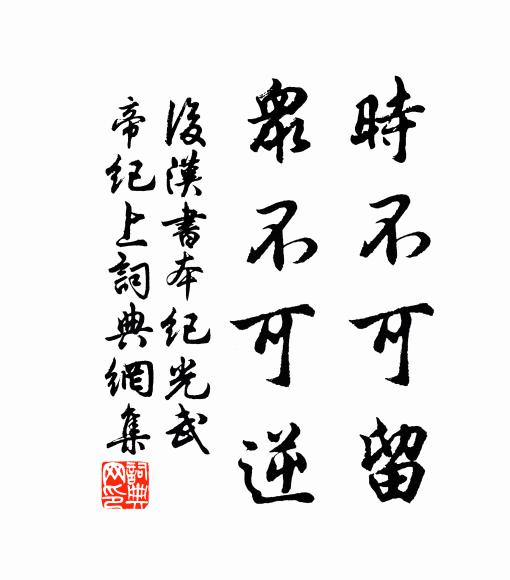 時不可留
眾不可逆
後漢書本紀光武
帝紀上詞典網集
詞典網印